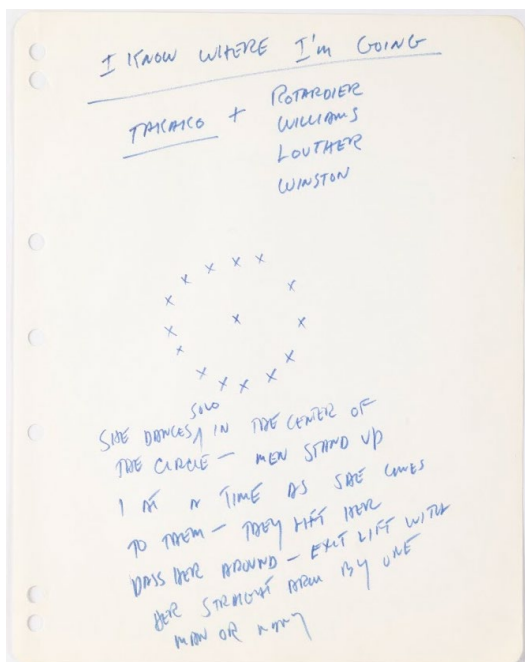 I KNOW WHERE I'm GOING
TAKAKO + ROTARDIER
WILLIAMS
LOUTHER
WINSTON
SOLO
SHE DANCES IN THE CENTER OF
THE CIRCLE – MEN STAND UP
1 AT A TIME AS SHE COMES
TO THEM – THEY LIFT HER
PASS HER AROUND – EXIT LIFT WITH
HER STRAIGHT ARM BY ONE
MAN OR MANY